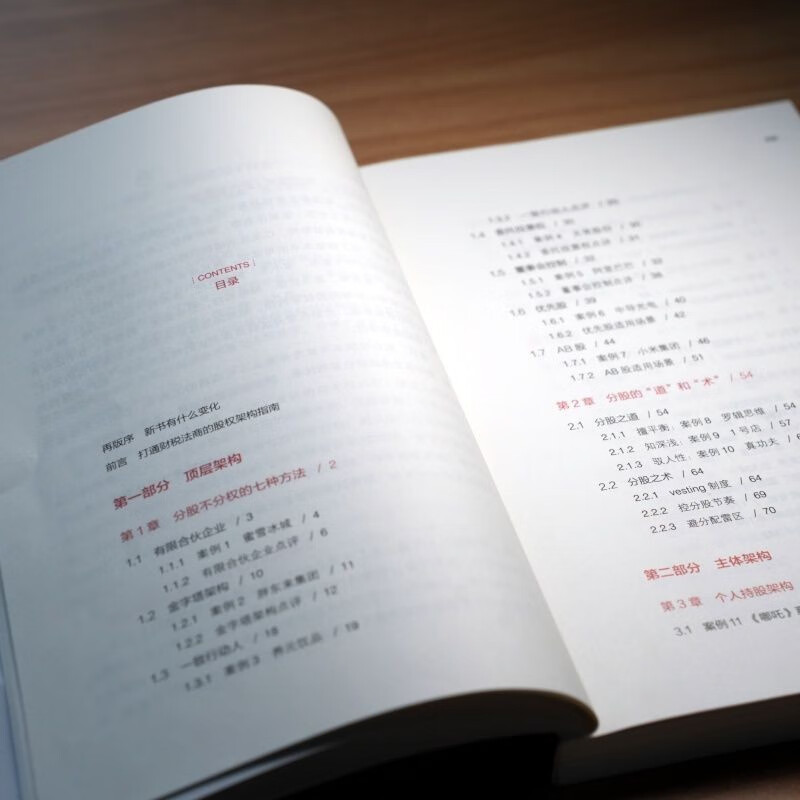 CONTENTS
目录
再版序 新书有什么变化
前言 打通财税法商的股权架构指南
第一部分 顶层架构
第1章 分股不分权的七种方法 / 2
1.1 有限合伙企业 / 3
1.1.1 案例1 蜜雪冰城 / 4
1.1.2 有限合伙企业点评 / 6
1.2 金字塔架构 / 10
1.2.1 案例2 胖东来集团 / 11
1.2.2 金字塔架构点评 / 12
1.3 一致行动人 / 18
1.3.1 案例3 养元饮品 / 19
1.3.2 一致行动人点评 /
1.4 委托投票权 / 30
1.4.1 案例4 / 30
1.4.2 委托投票权点评 / 31
1.5 董事会控制 / 32
1.5.1 案例5 阿里巴巴 / 33
1.5.2 董事会控制点评 / 38
1.6 优先股 / 39
1.6.1 案例6 中导光电 / 40
1.6.2 优先股适用场景 / 42
1.7 AB股 / 44
1.7.1 案例7 小米集团 / 46
1.7.2 AB股适用场景 / 51
第2章 分股的“道”和“术” / 54
2.1 分股之道 / 54
2.1.1 擅平衡：案例8 罗辑思维 / 54
2.1.2 知深浅：案例9 1号店 / 57
2.1.3 驭人性：案例10 真功夫 /
2.2 分股之术 / 64
2.2.1 vesting制度 / 64
2.2.2 控分股节奏 / 69
2.2.3 避分配雷区 / 70
第二部分 主体架构
第3章 个人持股架构
3.1 案例11《哪吒》